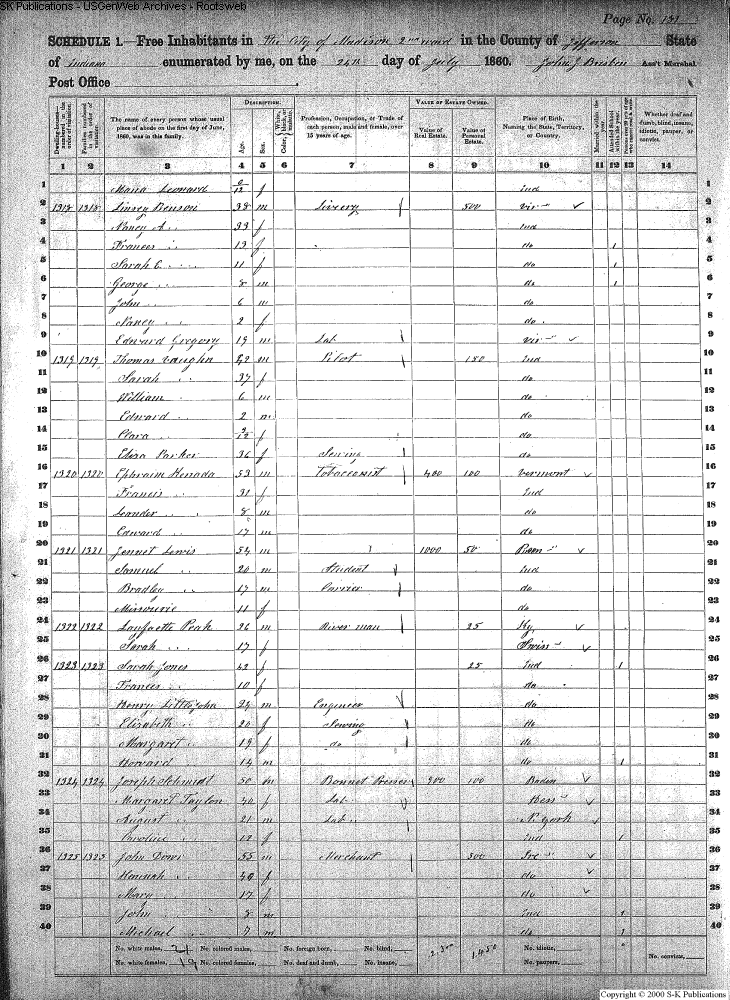 S-K Publications - USGenWeb Archives - Rootsweb
Page No. 131
SCHEDULE 1.—Free Inhabitants in The City of Madison 2nd ward in the County of Jefferson State
of Indiana enumerated by me, on the 24th day of July 1860. John J. Brisben Ass't Marshal.
Post Office
DESCRIPTION. VALUE OF ESTATE OWNED.
Dwelling-houses numbered in the order of visitation.
Families numbered in the order of visitation.
The name of every person whose usual place of abode on the first day of June, 1860, was in this family.
Age.
Sex.
Color, White, black, or mulatto.
Profession, Occupation, or Trade of each person, male and female, over 15 years of age.
Value of Real Estate.
Value of Personal Estate.
Place of Birth, Naming the State, Territory, or Country.
Married within the year.
Attended School within the year.
Whether deaf and dumb, blind, insane, idiotic, pauper, or convict.
1 2 3 4 5 6 7 8 9 10 11 12 13 14
1 Maria Leonard /12 f Ind 1
2 1318 1318 Linsey Benson 38 m Livery 500 Vir 2
3 Nancy A. " 33 f Ind 3
4 Frances " 13 f do 1 4
5 Sarah C. " 11 f do 1 5
6 George " 8 m do 1 6
7 John " 6 m do 7
8 Nancy " 2 f do 8
9 Edward Gregory 19 m Lab Vir 9
10 1319 1319 Thomas Vaughn 42 m Pilot 150 Ind 10
11 Sarah " 37 f do 11
12 William " 6 m do 12
13 Edward " 2 m do 13
14 Clara " /12 f do 14
15 Eliza Parker 36 f Sewing do 15
16 1320 1320 Ephraim 53 m Tobacconist 400 100 Vermont 16
17 Francis " 31 f Ind 17
18 Leander " 8 m do 18
19 Edward " 17 m do 19
20 1321 1321 Jennet Lewis 54 m 1000 50 Penn 20
21 Samuel " 20 m Student Ind 21
22 Bradley " 17 m Carrier do 22
23 Missourie " 11 f do 23
24 1322 1322 Layfaette Peak 26 m River man 25 Ky 24
25 Sarah " 17 f 25
26 1323 1323 Sarah Jones 42 f 25 Ind 1 26
27 Frances " 10 f do 27
28 Henry Littlejohn 24 m Engineer do 28
29 Elizabeth " 20 f Sewing do 29
30 Margaret " 19 f do do 30
31 Howard " 14 m do 1 31
32 1324 1324 Joseph Schmidt 50 m Bonnet Presser 900 100 Baden 32
33 Margaret Taylon 40 f Lab 33
34 August " 21 m Lab N. York 34
35 Caroline " 12 f Ind 1 35
36 1325 1325 John Dow 55 m Merchant 300 Ire 36
37 Hannah " 40 f do 37
38 Mary " 17 f do 38
39 John " 8 m Ind 1 39
40 Michael " 7 m do 1 40
No. white males, 21 No. colored males, No. foreign born, No. blind, 2.300 1.450 No. idiotic,
No. white females, 19 No. colored females, No. deaf and dumb, No. insane, No. paupers, No. convicts,
Copyright © 2000 S-K Publications